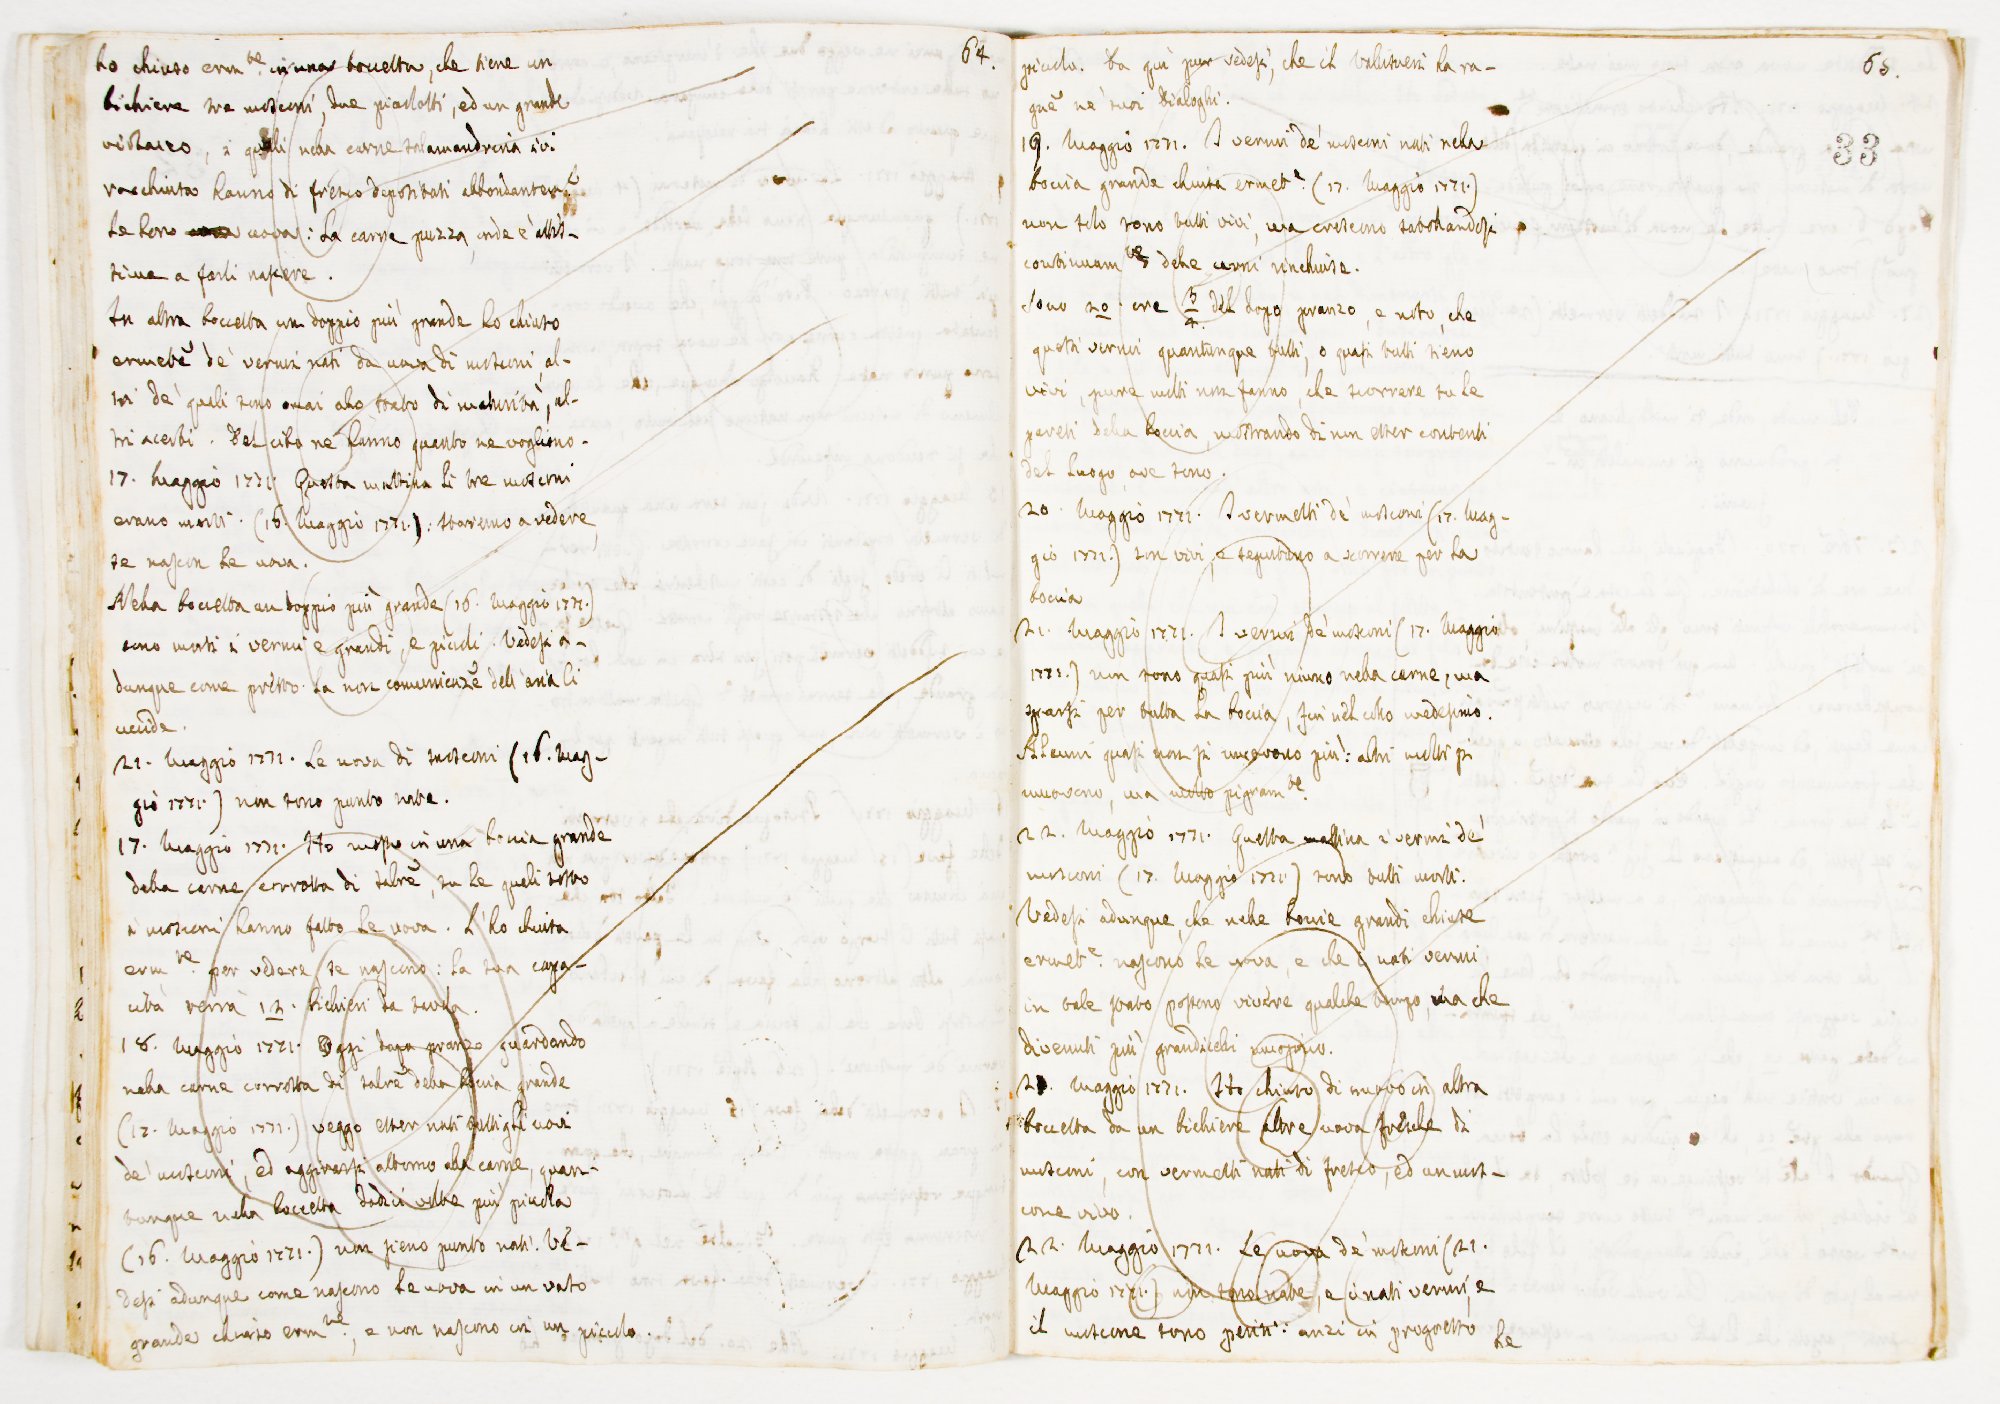 64.
ho chiuso erm.te in una boccetta, che tiene un
bichiere tre mosconi, due piccoletti, ed un grande
vistoso, i quali nella carne salamandrina ivi
racchiusa hanno di fresco depositati abbondantem.e
le loro uova: la carne puzza, onde è attis-
sima a farli nascere.
In altra boccetta un doppio più grande ho chiuso
ermet.e de' vermi nati da uova di mosconi, al-
tri de' quali sono omai allo stato di maturità, al-
tri acerbi. Del cibo ne hanno quanto ne vogliono.
17. Maggio 1771. Questa mattina li tre mosconi
erano morti. (16. Maggio 1771.): staremo a vedere,
se nascon le uova.
Nella boccetta un doppio più grande (16. Maggio 1771.)
sono morti i vermi e grandi, e piccoli. Vedesi a-
dunque come presto la non comunicaz.e dell'aria li
uccide.
21. Maggio 1771. Le uova di mosconi (16. Mag-
gio 1771.) non sono punto nate.
17. Maggio 1771. Ho messo in una boccia grande
della carne corrotta di salam.e, su le quali tosto
i mosconi hanno fatto le uova. L'ho chiusa
erm.te per vedere se nascono: la sua capa-
cità verrà 12. bichieri da tavola.
18. Maggio 1771. Oggi dopo pranzo guardando
nella carne corrotta di salam.e della boccia grande
(17. Maggio 1771.) veggo esser nati tutti gli uovi
de' mosconi, ed aggirarsi attorno alla carne, quan-
tunque nella boccetta dodici volte più piccola
(16. Maggio 1771.) non sieno punto nati. Ve-
desi adunque come nascono le uova in un vaso
grande chiuso erm.te, e non nascono in un piccolo.
65.
33
piccolo. Da qui pur vedesi, che il Vallisneri ha ra-
gne ne' suoi Dialoghi.
19. Maggio 1771. I vermi de' mosconi nati nella
boccia grande chiusa ermet.e (17. Maggio 1771.)
non solo sono tutti vivi, ma crescono satollandosi
continuam.te delle carni rinchiuse.
Sono 20. ore 3/4. del dopo pranzo, e noto, che
questi vermi quantunque tutti, o quasi tutti sieno
vivi, pure molti non fanno, che scorrere su le
pareti della boccia, mostrando di non esser contenti
del luogo, ove sono.
20. Maggio 1771. I vermetti de' mosconi (17. Mag-
gio 1771.) son vivi, e seguitano a scorrere per la
boccia
21. Maggio 1771. I vermi de' mosconi (17. Maggio
1771.) non sono quasi più niuno nella carne, ma
sparsi per tutta la boccia, fin nel collo medesimo.
Alcuni quasi non si muovono più: altri molti si
muovono, ma molto pigram.te.
22. Maggio 1771. Questa mattina i vermi de'
mosconi (17. Maggio 1771.) sono tutti morti.
Vedesi adunque, che nelle boccie grandi chiuse
ermet.e nascono le uova, e che i nati vermi
in tale stato possono vivere qualche tempo, ma che
divenuti più grandicelli muojono.
21. Maggio 1771. Ho chiuso di nuovo in altra
boccetta da un bichiere altre uova fresche di
mosconi, con vermetti nati di fresco, ed un mos-
cone vivo.
22. Maggio 1771. Le uova de' mosconi (21.
Maggio 1771.) non sono nate, e i nati vermi, e
il moscone sono periti: anzi in progresso
le